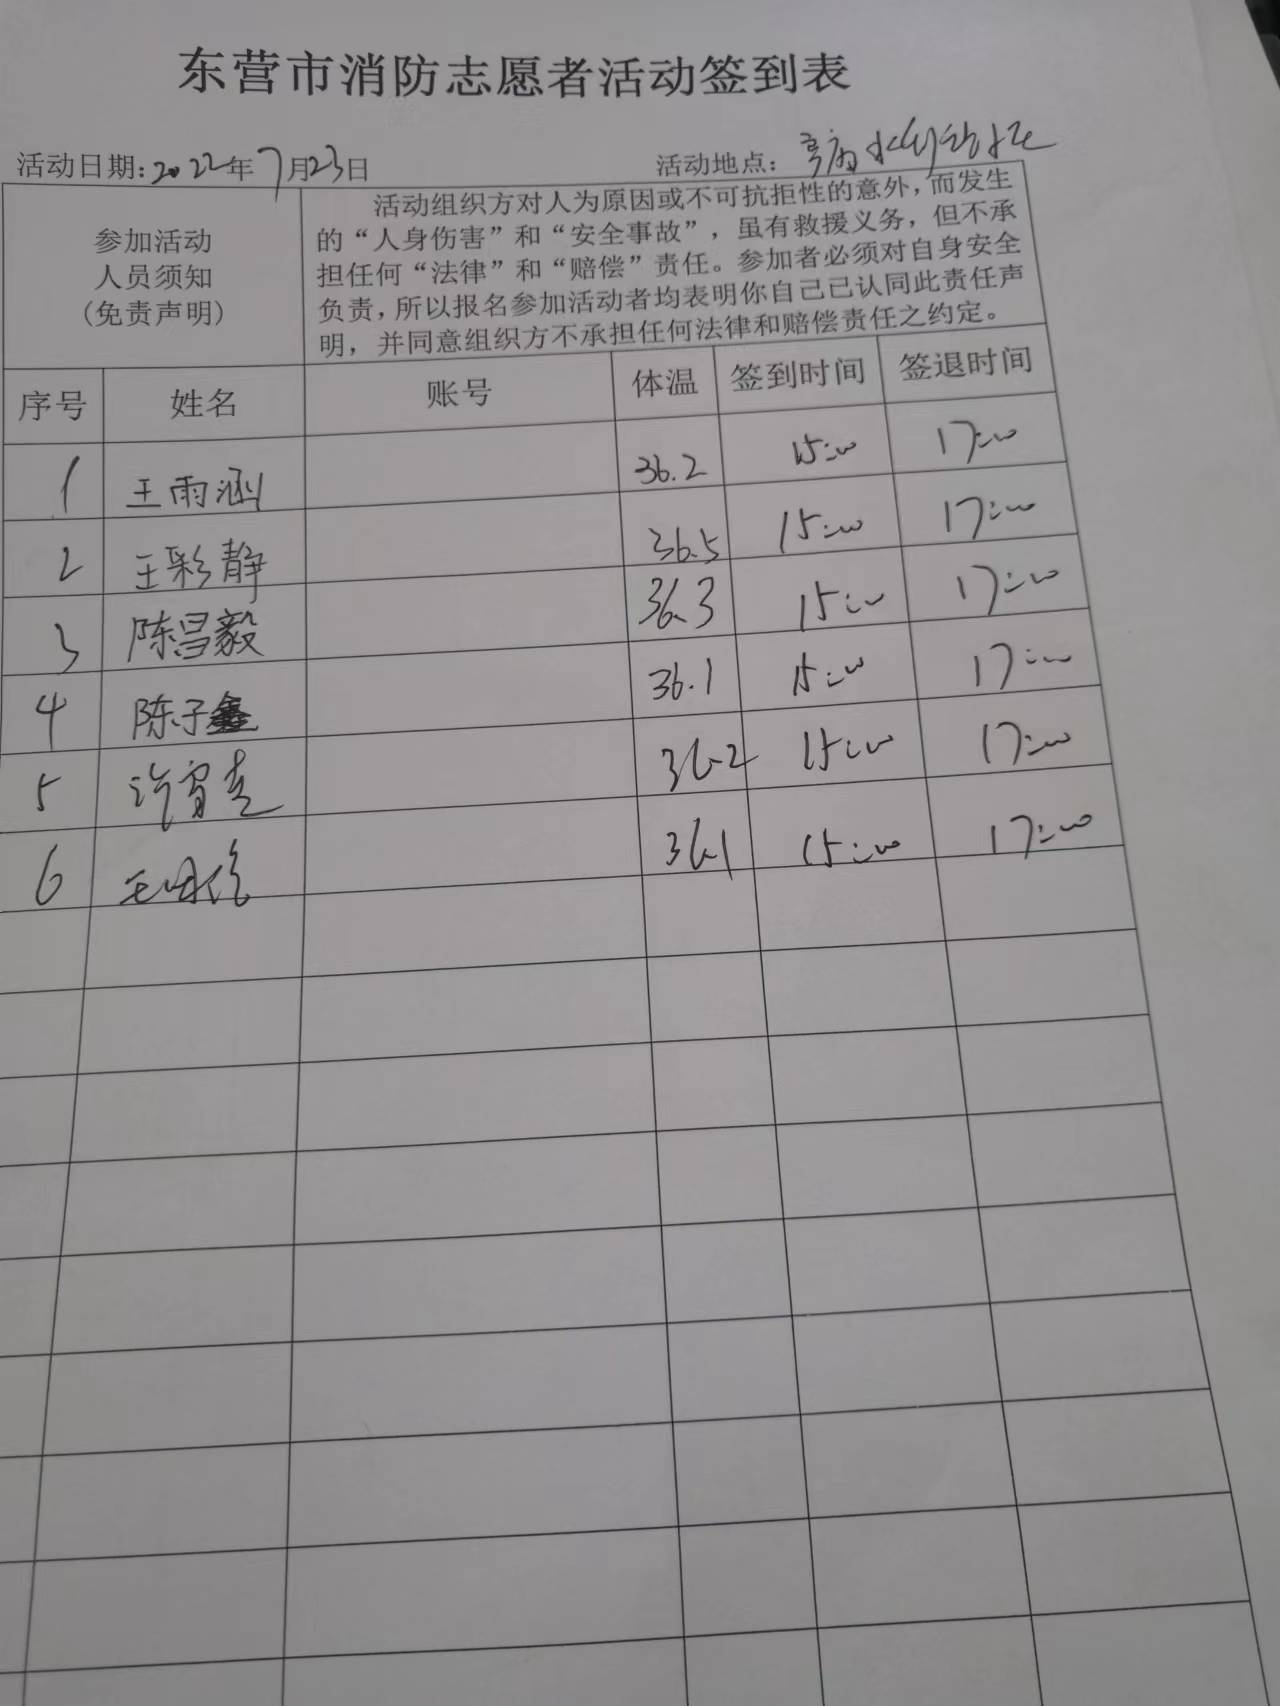 东营市消防志愿者活动签到表
活动日期:2022年7月23日 活动地点:
参加活动
人员须知
(免责声明)
活动组织方对人为原因或不可抗拒性的意外,而发生
的“人身伤害”和“安全事故”,虽有救援义务,但不承
担任何“法律”和“赔偿”责任。参加者必须对自身安全
负责,所以报名参加活动者均表明你自己已认同此责任声
明,并同意组织方不承担任何法律和赔偿责任之约定。
序号 姓名 账号 体温 签到时间 签退时间
1 王雨涵 36.2 15:00 17:00
2 王彩静 36.5 15:00 17:00
3 陈昌毅 36.3 15:00 17:00
4 陈子鑫 36.1 15:00 17:00
5 许 36.2 15:00 17:00
6 王 36.1 15:00 17:00